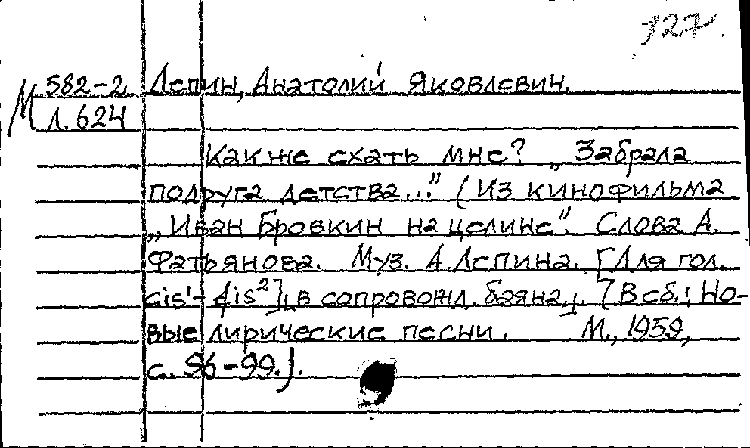 327.
М 582-2 Лепин, Анатолий Яковлевич.
Л. 624
Как же ехать мне? „Забрала
подруга детства..." (Из кинофильма
„Иван Бровкин на целине". Слова А.
Фатьянова. Муз. А. Лепина. [Для гол.
cis¹- fis²], в сопровожд. баяна,. [В сб.: Но-
вые лирические песни. М., 1959,
с. 96-99.].